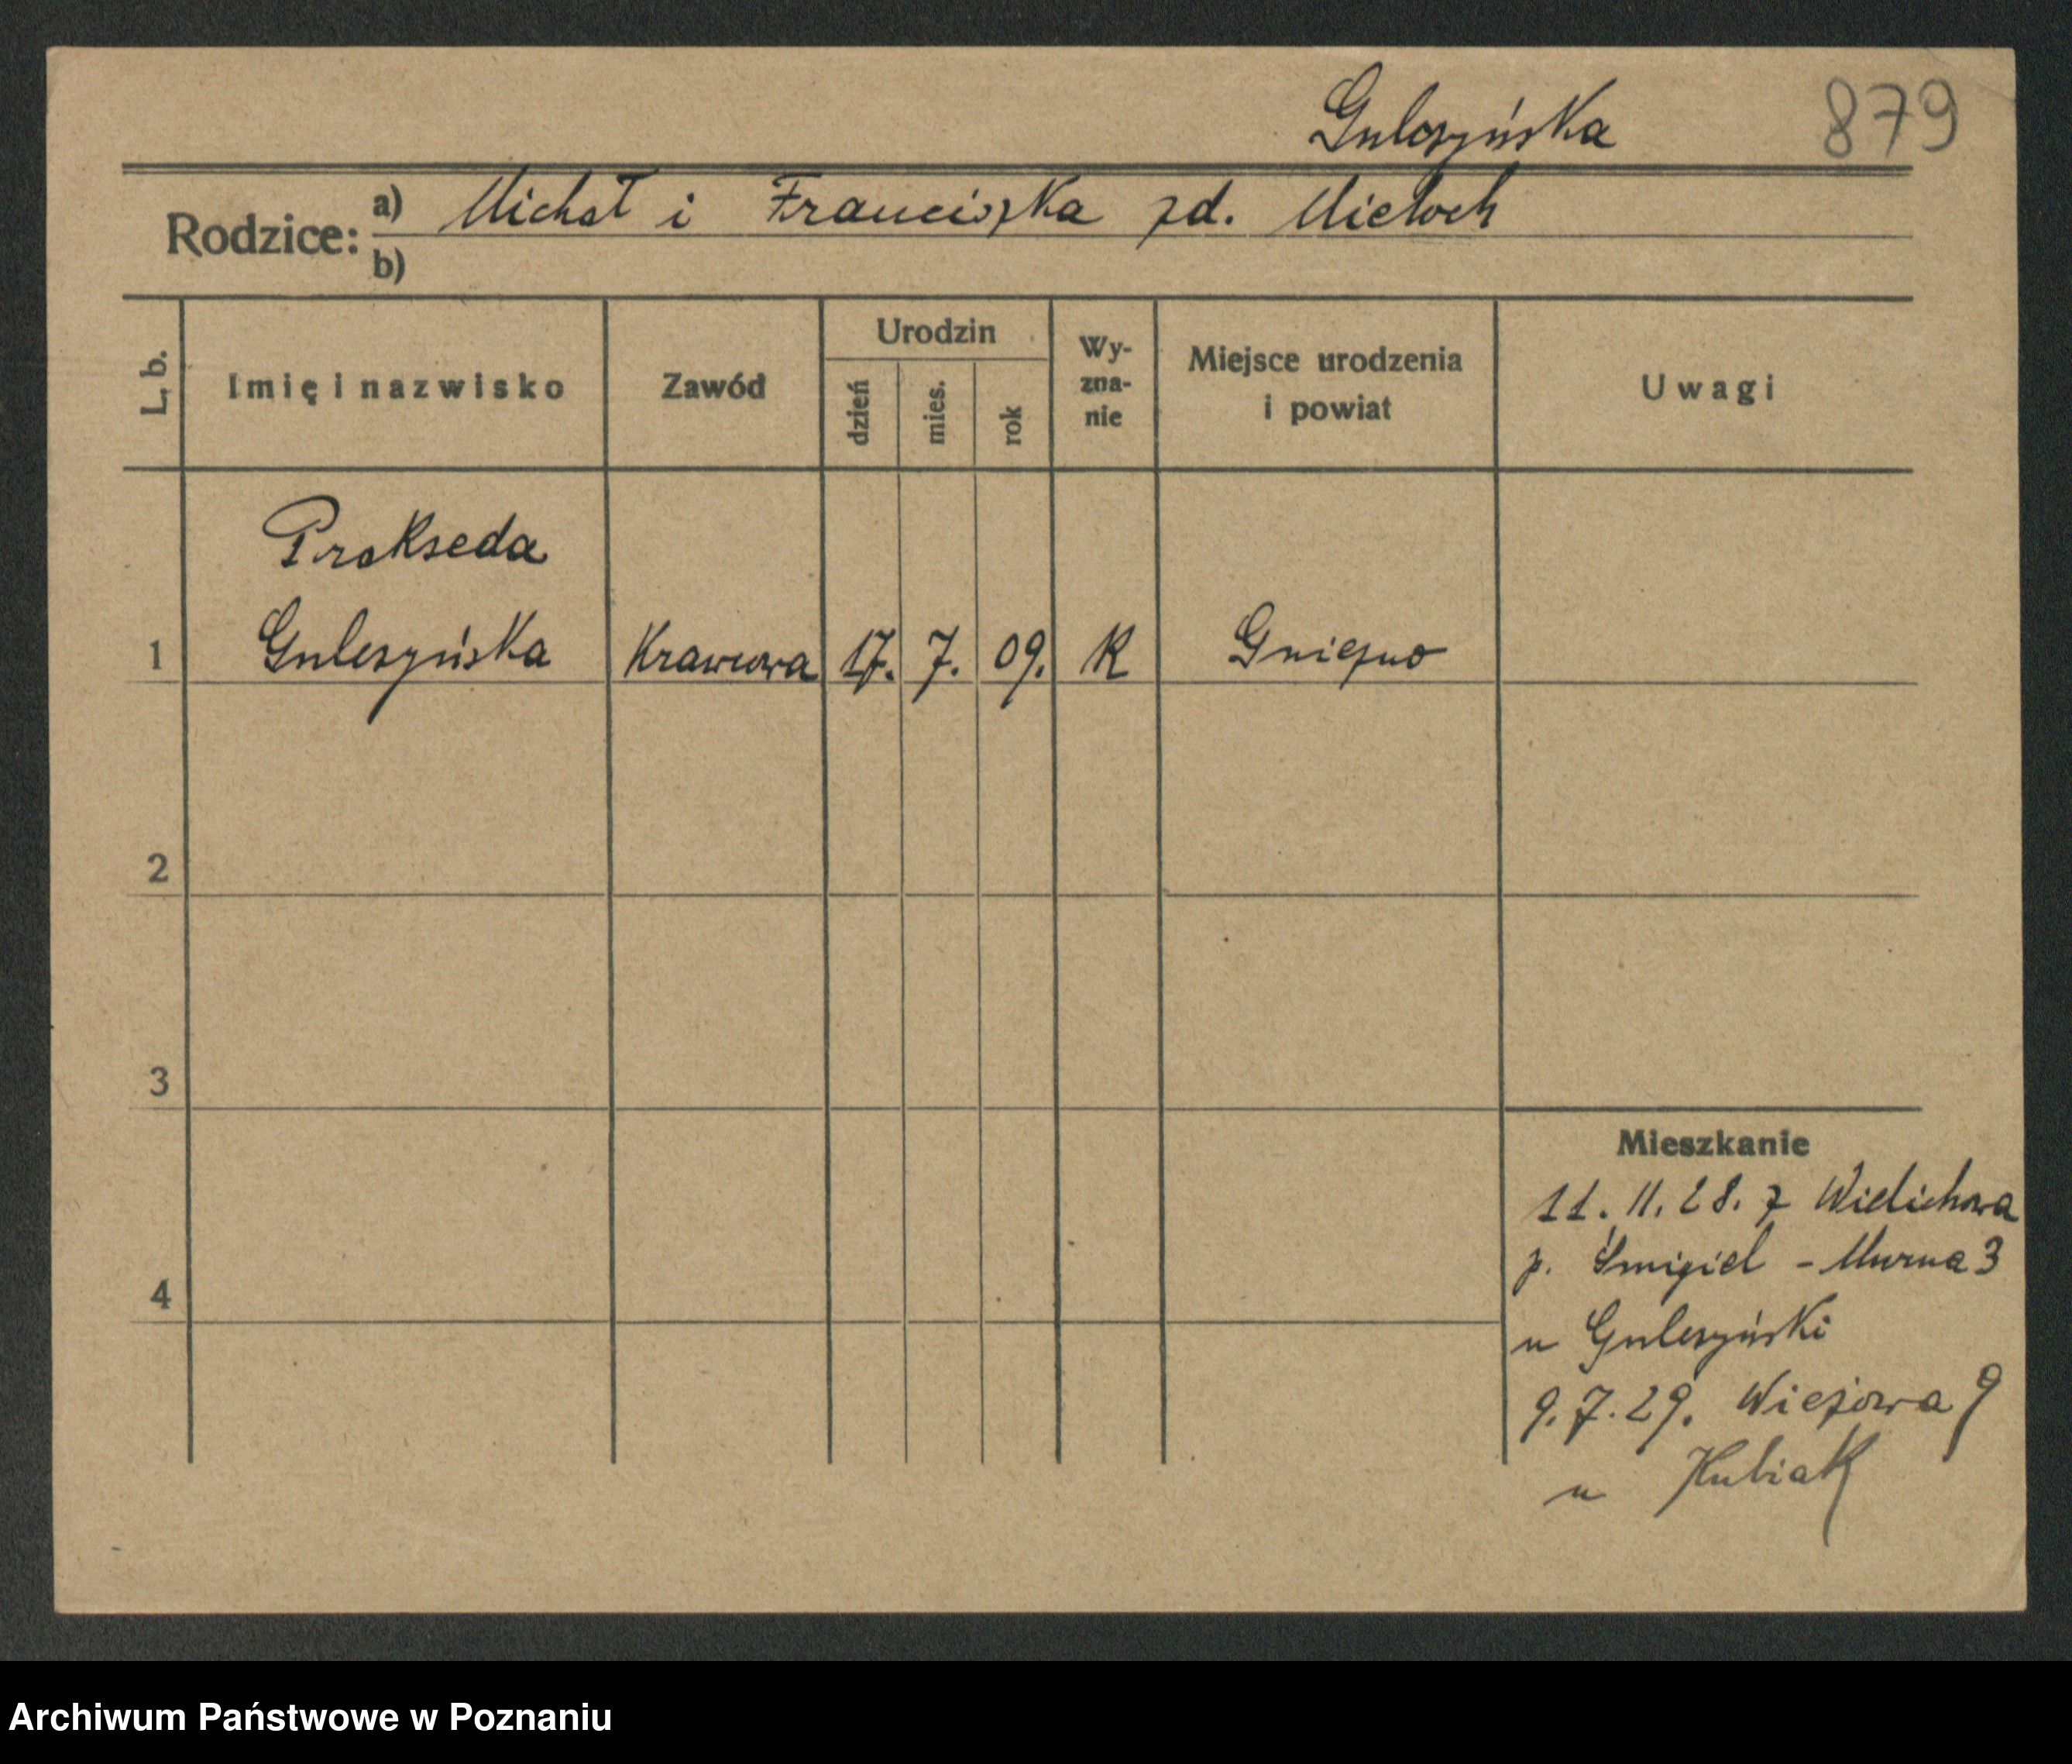 Gulczyńska 879
Rodzice: a) Michał i Franciszka zd. Mieloch
b)
L. b. Imię i nazwisko Zawód Urodzin dzień mies. rok Wy-zna-nie Miejsce urodzenia i powiat Uwagi
Prakseda
1 Gulczyńska Krawcowa 17. 7. 09. K Gniezno
2
3
Mieszkanie
11. 11. 28. z Wielichowa
p. Śmigiel - Murna 3
4
u Gulczyński
9. 7. 29. Wiejowa 9
u Kubiak
Archiwum Państwowe w Poznaniu